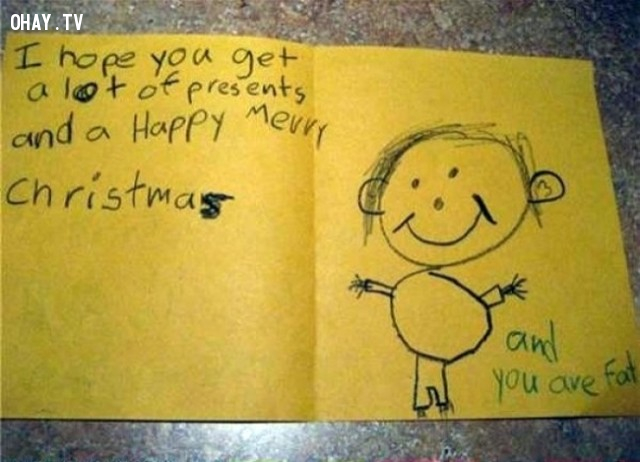 OHAY.TV
I hope you get
a lot of presents
and a Happy Merry
Christmas
and
you are Fat